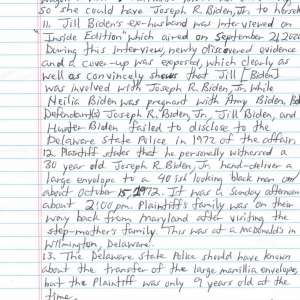 so she could have Joseph R. Biden, Jr. to herself
11. Jill Biden's ex-husband was interviewed on
"Inside Edition" which aired on September 21, 2020
During this interview, newly discovered evidence
and a cover-up was exposed, which clearly as
well as convincely shows that Jill [Biden]
was involved with Joseph R. Biden, Jr. while
Neilia Biden was pregnant with Amy Biden.
Defendant(s) Joseph R. Biden, Jr., Jill Biden, and
Hunter Biden failed to disclose to the
Delaware State Police in 1972 of the affair.
12. Plaintiff states that he personally witnessed a
30 year old Joseph R. Biden, Jr. hand-deliver a
large envelope to a 40 ish looking black man on
about October 15, 1972. It was a Sunday afternoon
about 2:00 pm. Plaintiff's family was on their
way back from Maryland after visiting the
step-mother's family. This was at a McDonalds in
Wilmington, Delaware.
13. The Delaware State Police should have known
about the transfer of the large manillia envelope,
but the Plaintiff was only 9 years old at the
time.